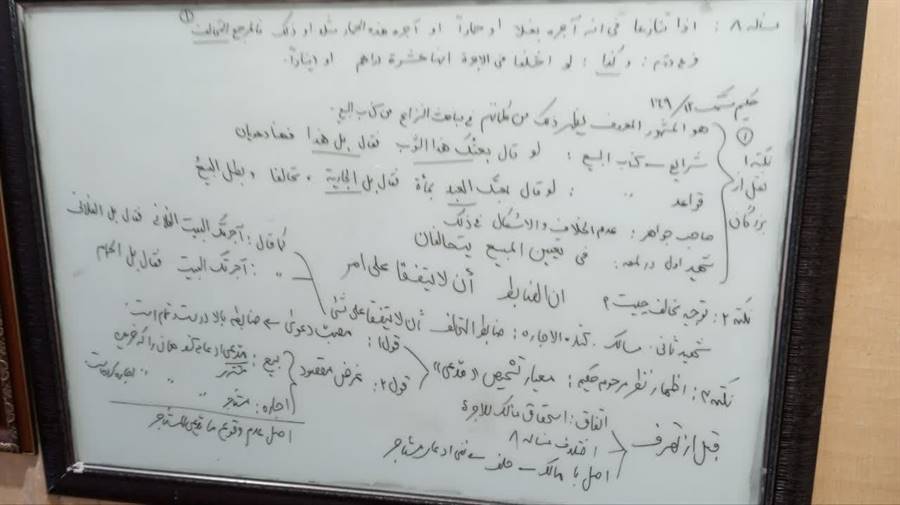 مسئله ۸ : اذا تنازعا فی انه آجره بغلا او حمارا او آجره هذه الحمار مثل او ذلک فالمرجع التحالف ①
فرع دوم : و کذا : لو اختلفا فی الاجرة انها عشرة دراهم او دینار.
حکیم مستمسک ۱۲/ ۱۶۹
① هو المشهور المعروف یظهر ذلک من کلماتهم فی مباحث النزاع من کتاب البیع.
نکته ۱ نقل از بزرگان
شرایع – کتاب البیع : لو قال بعتک هذا الثوب فقال بل هذا فهنا دعویان
قواعد " " : لو قال بعتک العبد بمأة فقال بل الجاریة ، تحالفا و بطل البیع
صاحب جواهر : عدم الخلاف و الاشکال فی ذلک
شهید اول در لمعه : فی تعیین المبیع یتحالفان
نکته ۲ : توجیه تحالف چیست ؟ ان الضابط أن لا یتفقا علی امر
شهید ثانی . مسالک . کتاب الاجاره : ضابط التحالف أن لا یتفقا علی شئ
کما قال : آجرتک البیت الفلانی فقال بل الفلانی
" : آجرتک البیت فقال بل الحمام
نکته ۳ : اظهار نظر مرحوم حکیم : معیار تشخیص «مدعی»
قول ۱ : مصب دعوی – ضابطه بالا درست و تمام است
قول ۲ : غرض مقصود
بیع : مشتری
اجاره : مستأجر " "
اصل عدم وقوع ما یدعی المستأجر
قبل از تصرف
اتفاق : استحقاق مالک للاجرة
اختلاف مسئله ۸
اصل با مالک – حلف – نفی ادعای مستأجر